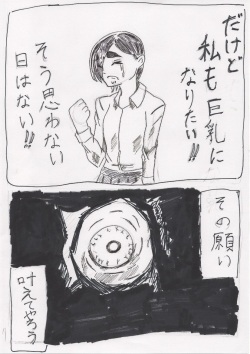 だけど
私も巨乳に
なりたい!!
そう思わない
日はない!!
その願い
叶えてやろう